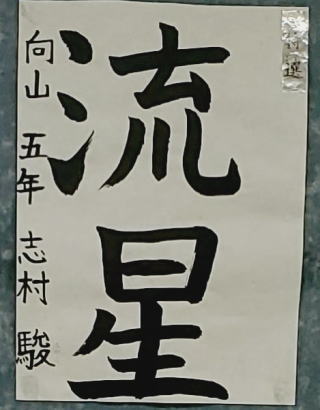 特選
流星
向山 五年 志村 駿